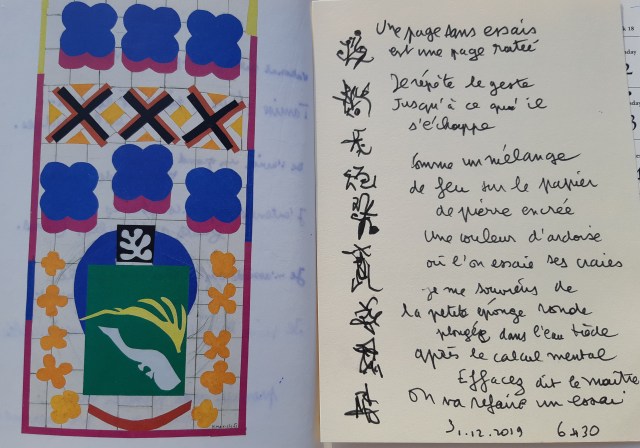 Une page sans essais
est une page ratée
Je répète le geste
Jusqu'à ce qu'il
s'échappe
Comme un mélange
de feu sur le papier
de pierre encrée
Une couleur d'ardoise
où l'on essaie ses craies
je me souviens de
la petite éponge ronde
plongée dans l'eau tiède
après le calcul mental
Effacez dit le maître
On va refaire un essai
31.12.2019 6h30